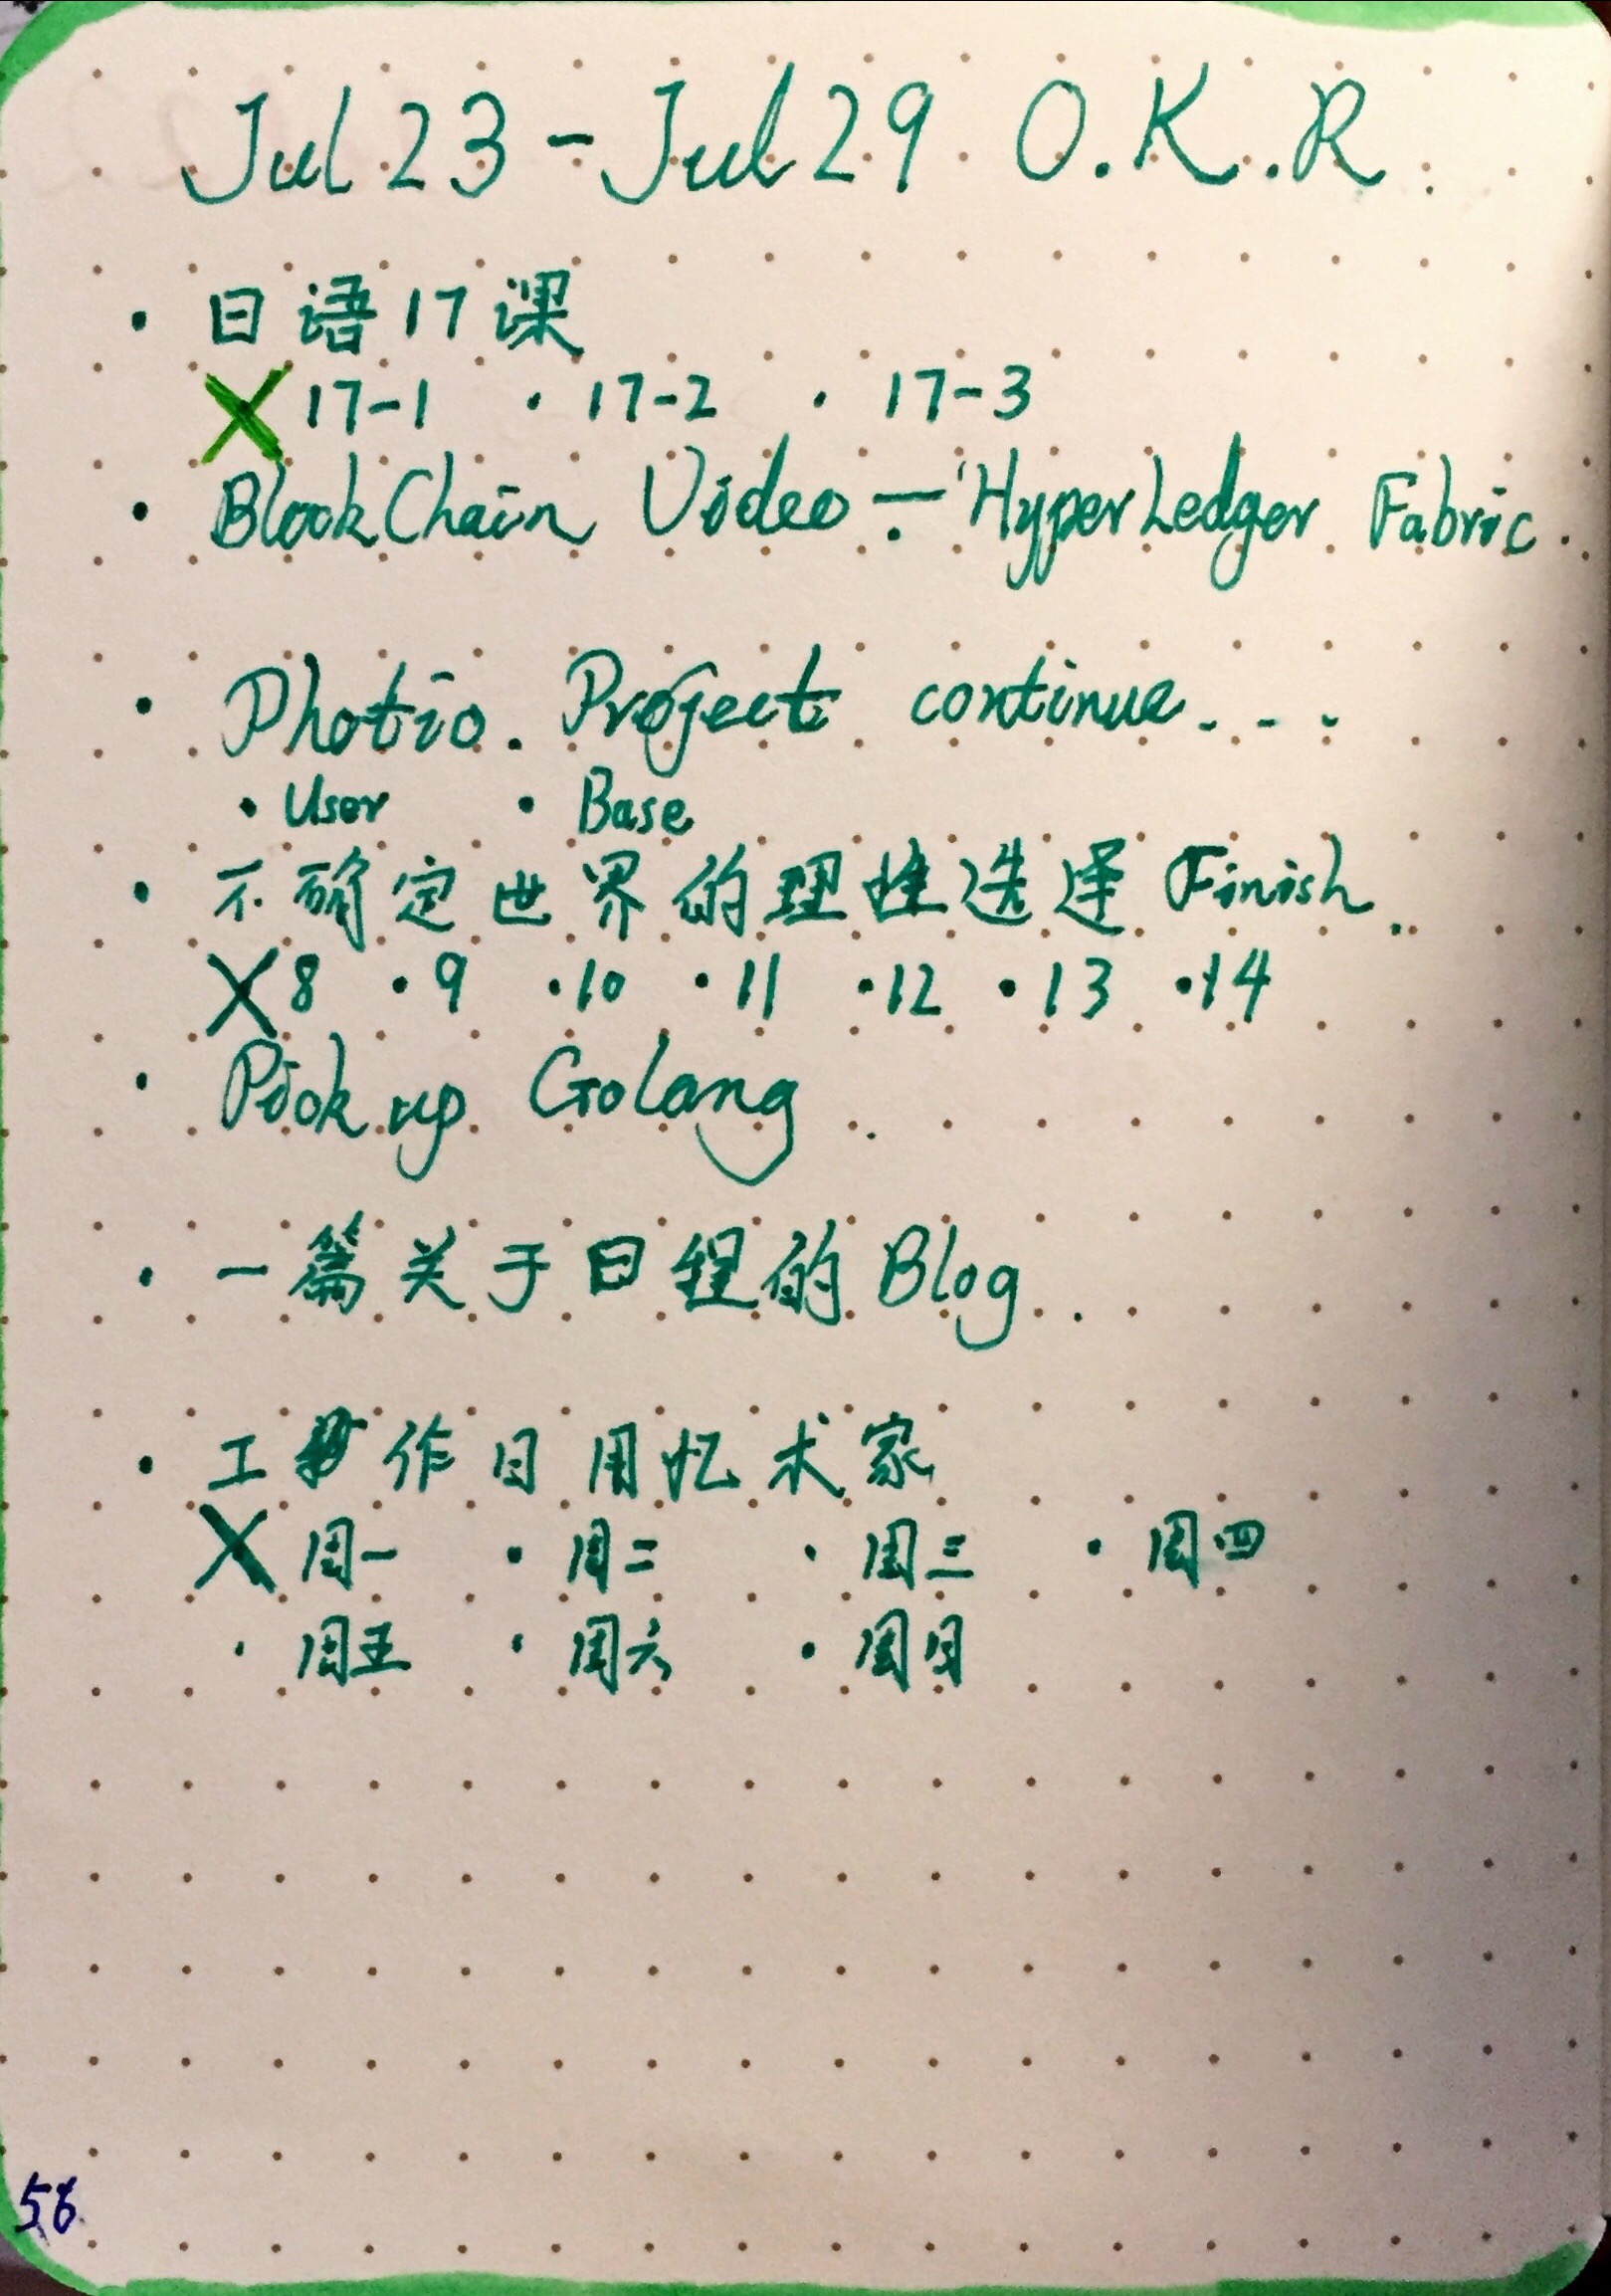 Jul 23 - Jul 29 O.K.R.
· 日语17课
X 17-1 · 17-2 · 17-3
· BlockChain Video — HyperLedger Fabric.
· Photio. Project continue...
· User · Base
· 不确定世界的理性选择 Finish.
X 8 · 9 · 10 · 11 · 12 · 13 · 14
· Pick up Golang.
· 一篇关于日程的Blog.
· 工作日用忆术家
X 周一 · 周二 · 周三 · 周四
· 周五 · 周六 · 周日
56